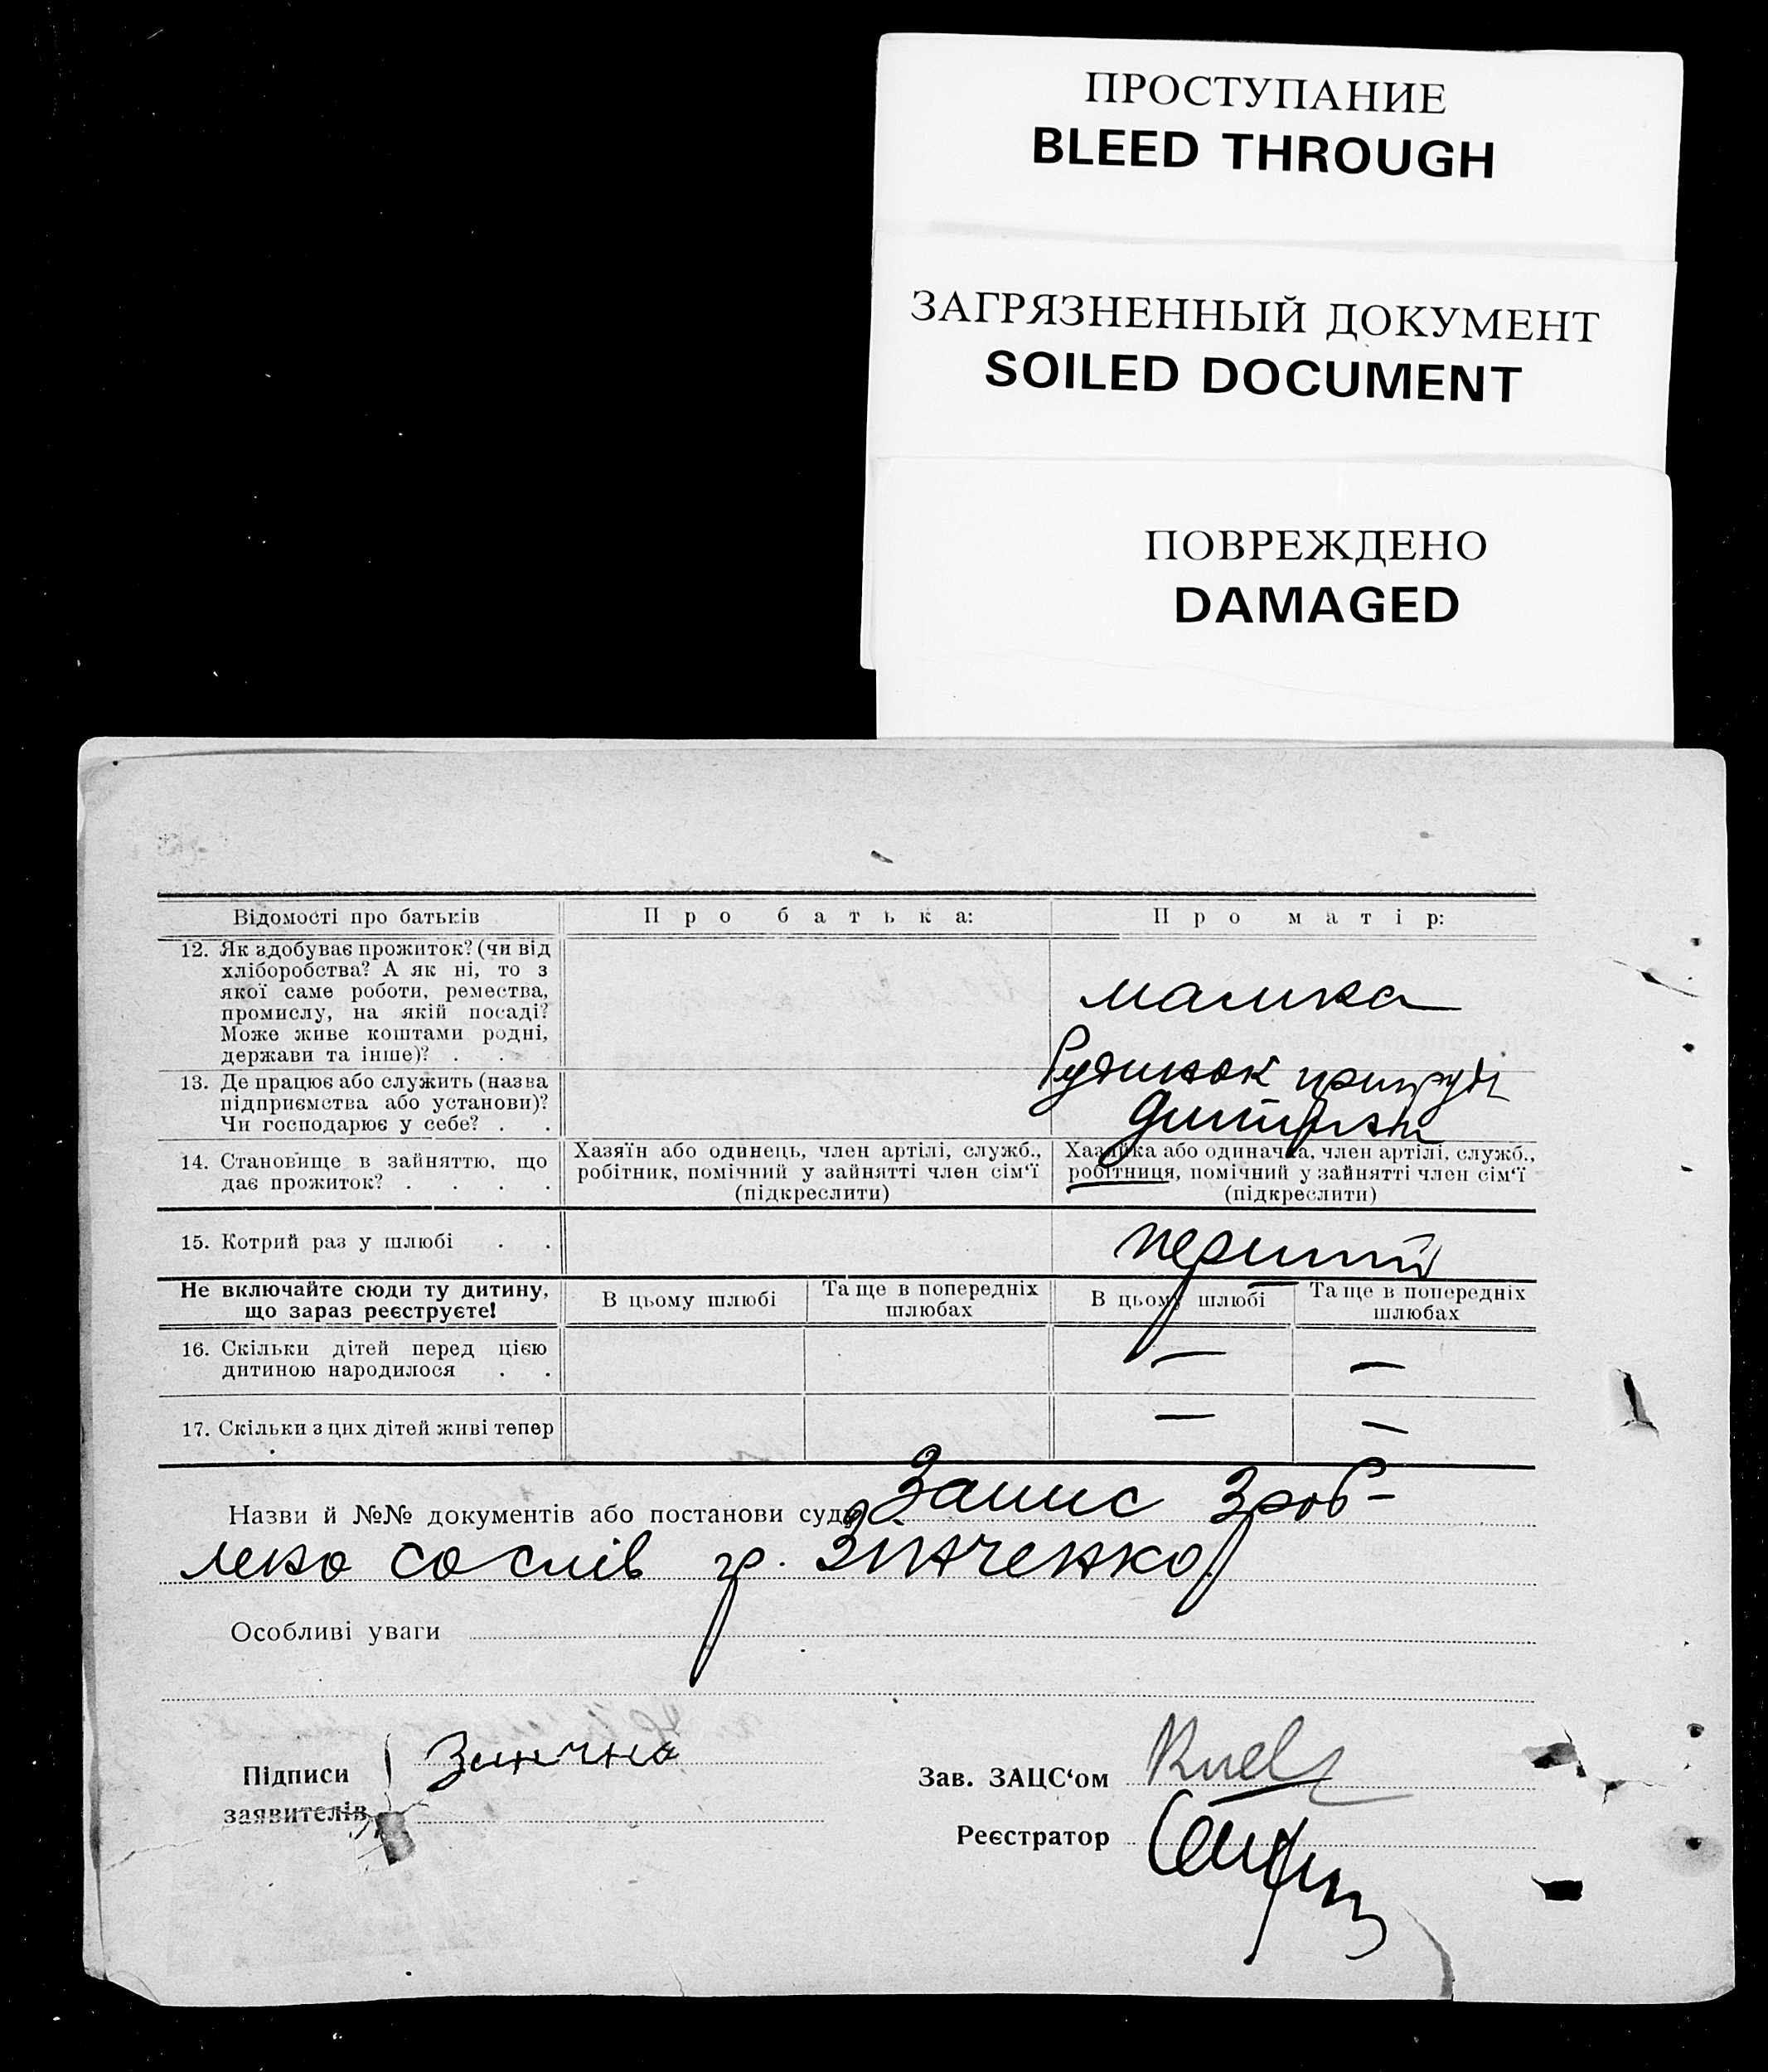 ПРОСТУПАНИЕ
BLEED THROUGH
ЗАГРЯЗНЕННЫЙ ДОКУМЕНТ
SOILED DOCUMENT
ПОВРЕЖДЕНО
DAMAGED
Відомості про батьків
Про батька:
Про матір:
12. Як здобуває прожиток? (чи від
хліборобства? А як ні, то з
якої саме роботи, ремества,
промислу, на якій посаді?
Може живе коштами родні,
держави та інше)? . . .
мамка
13. Де працює або служить (назва
підприємства або установи)?
Чи господарює у себе? . .
Будинок
14. Становище в зайняттю, що
дає прожиток? . . . .
Хазяїн або одинець, член артілі, служб.,
робітник, помічний у зайнятті член сім'ї
(підкреслити)
Хазяйка або одиначка, член артілі, служб.,
робітниця, помічний у зайнятті член сім'ї
(підкреслити)
15. Котрий раз у шлюбі . .
перший
Не включайте сюди ту дитину,
що зараз реєструєте!
В цьому шлюбі
Та ще в попередніх
шлюбах
В цьому шлюбі
Та ще в попередніх
шлюбах
16. Скільки дітей перед цією
дитиною народилося . .
— —
17. Скільки з цих дітей живі тепер
— —
Назви й №№ документів або постанови суду Запис зроб-
лено со слів гр. Зінченко
Особливі уваги
Підписи
заявителів
Зав. ЗАЦС'ом
Реєстратор